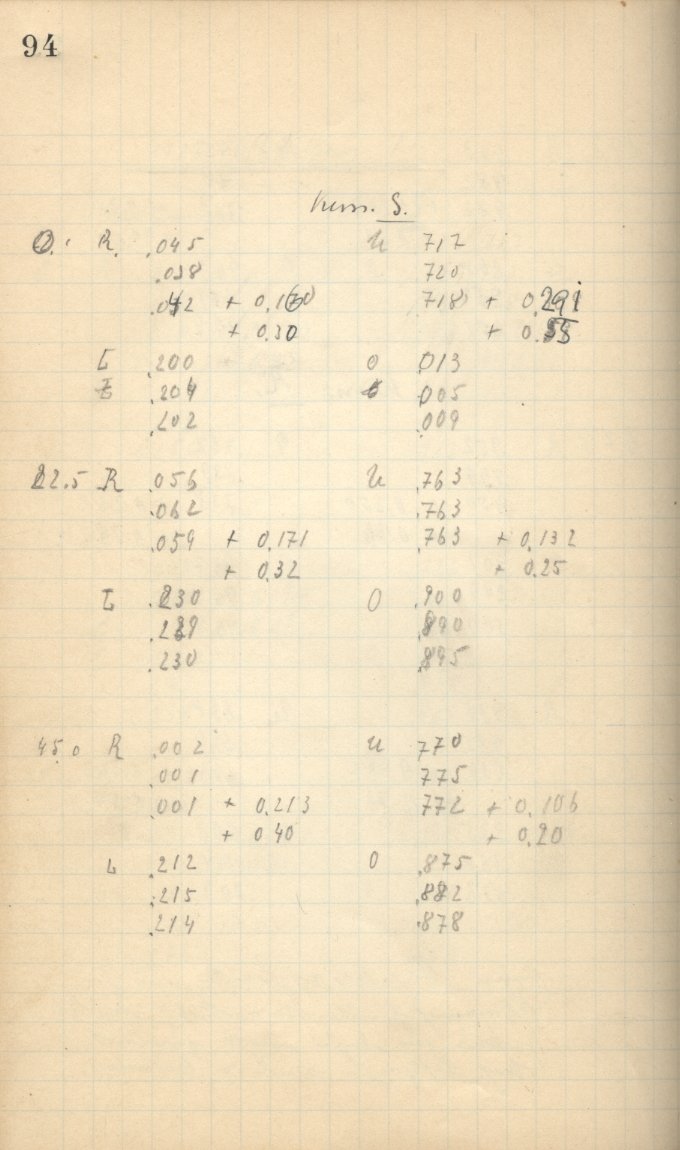 94
S.
0. R. .045 U 717
.038 720
.042 + 0.160 718 + 0.291
+ 0.30 + 0.55
L .200 O .013
.204 .005
.202 .009
22.5 R .056 U .763
.062 .763
.059 + 0.171 .763 + 0.132
+ 0.32 + 0.25
L .230 O .900
.229 .890
.230 .895
45.0 R .002 U 770
.001 775
.001 + 0.213 772 + 0.106
+ 0.40 + 0.20
L .212 O .875
.215 .882
.214 .878